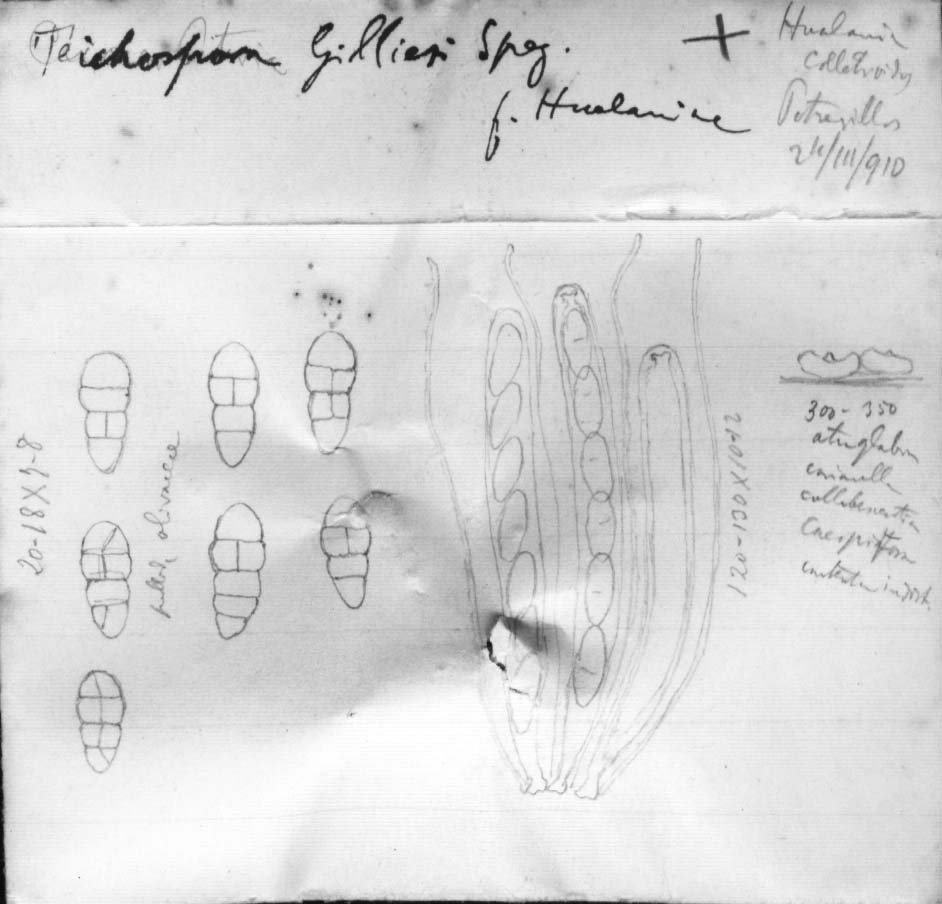 Teichospora Gilliesi Speg.
f. Hualaniae
+
Hualania
colletioides
Potrerillos
24/III/910
20-18X7-8
pallide olivaceae
120-130X10-12
300-350
atriglabra
collabescentia
caespitosa